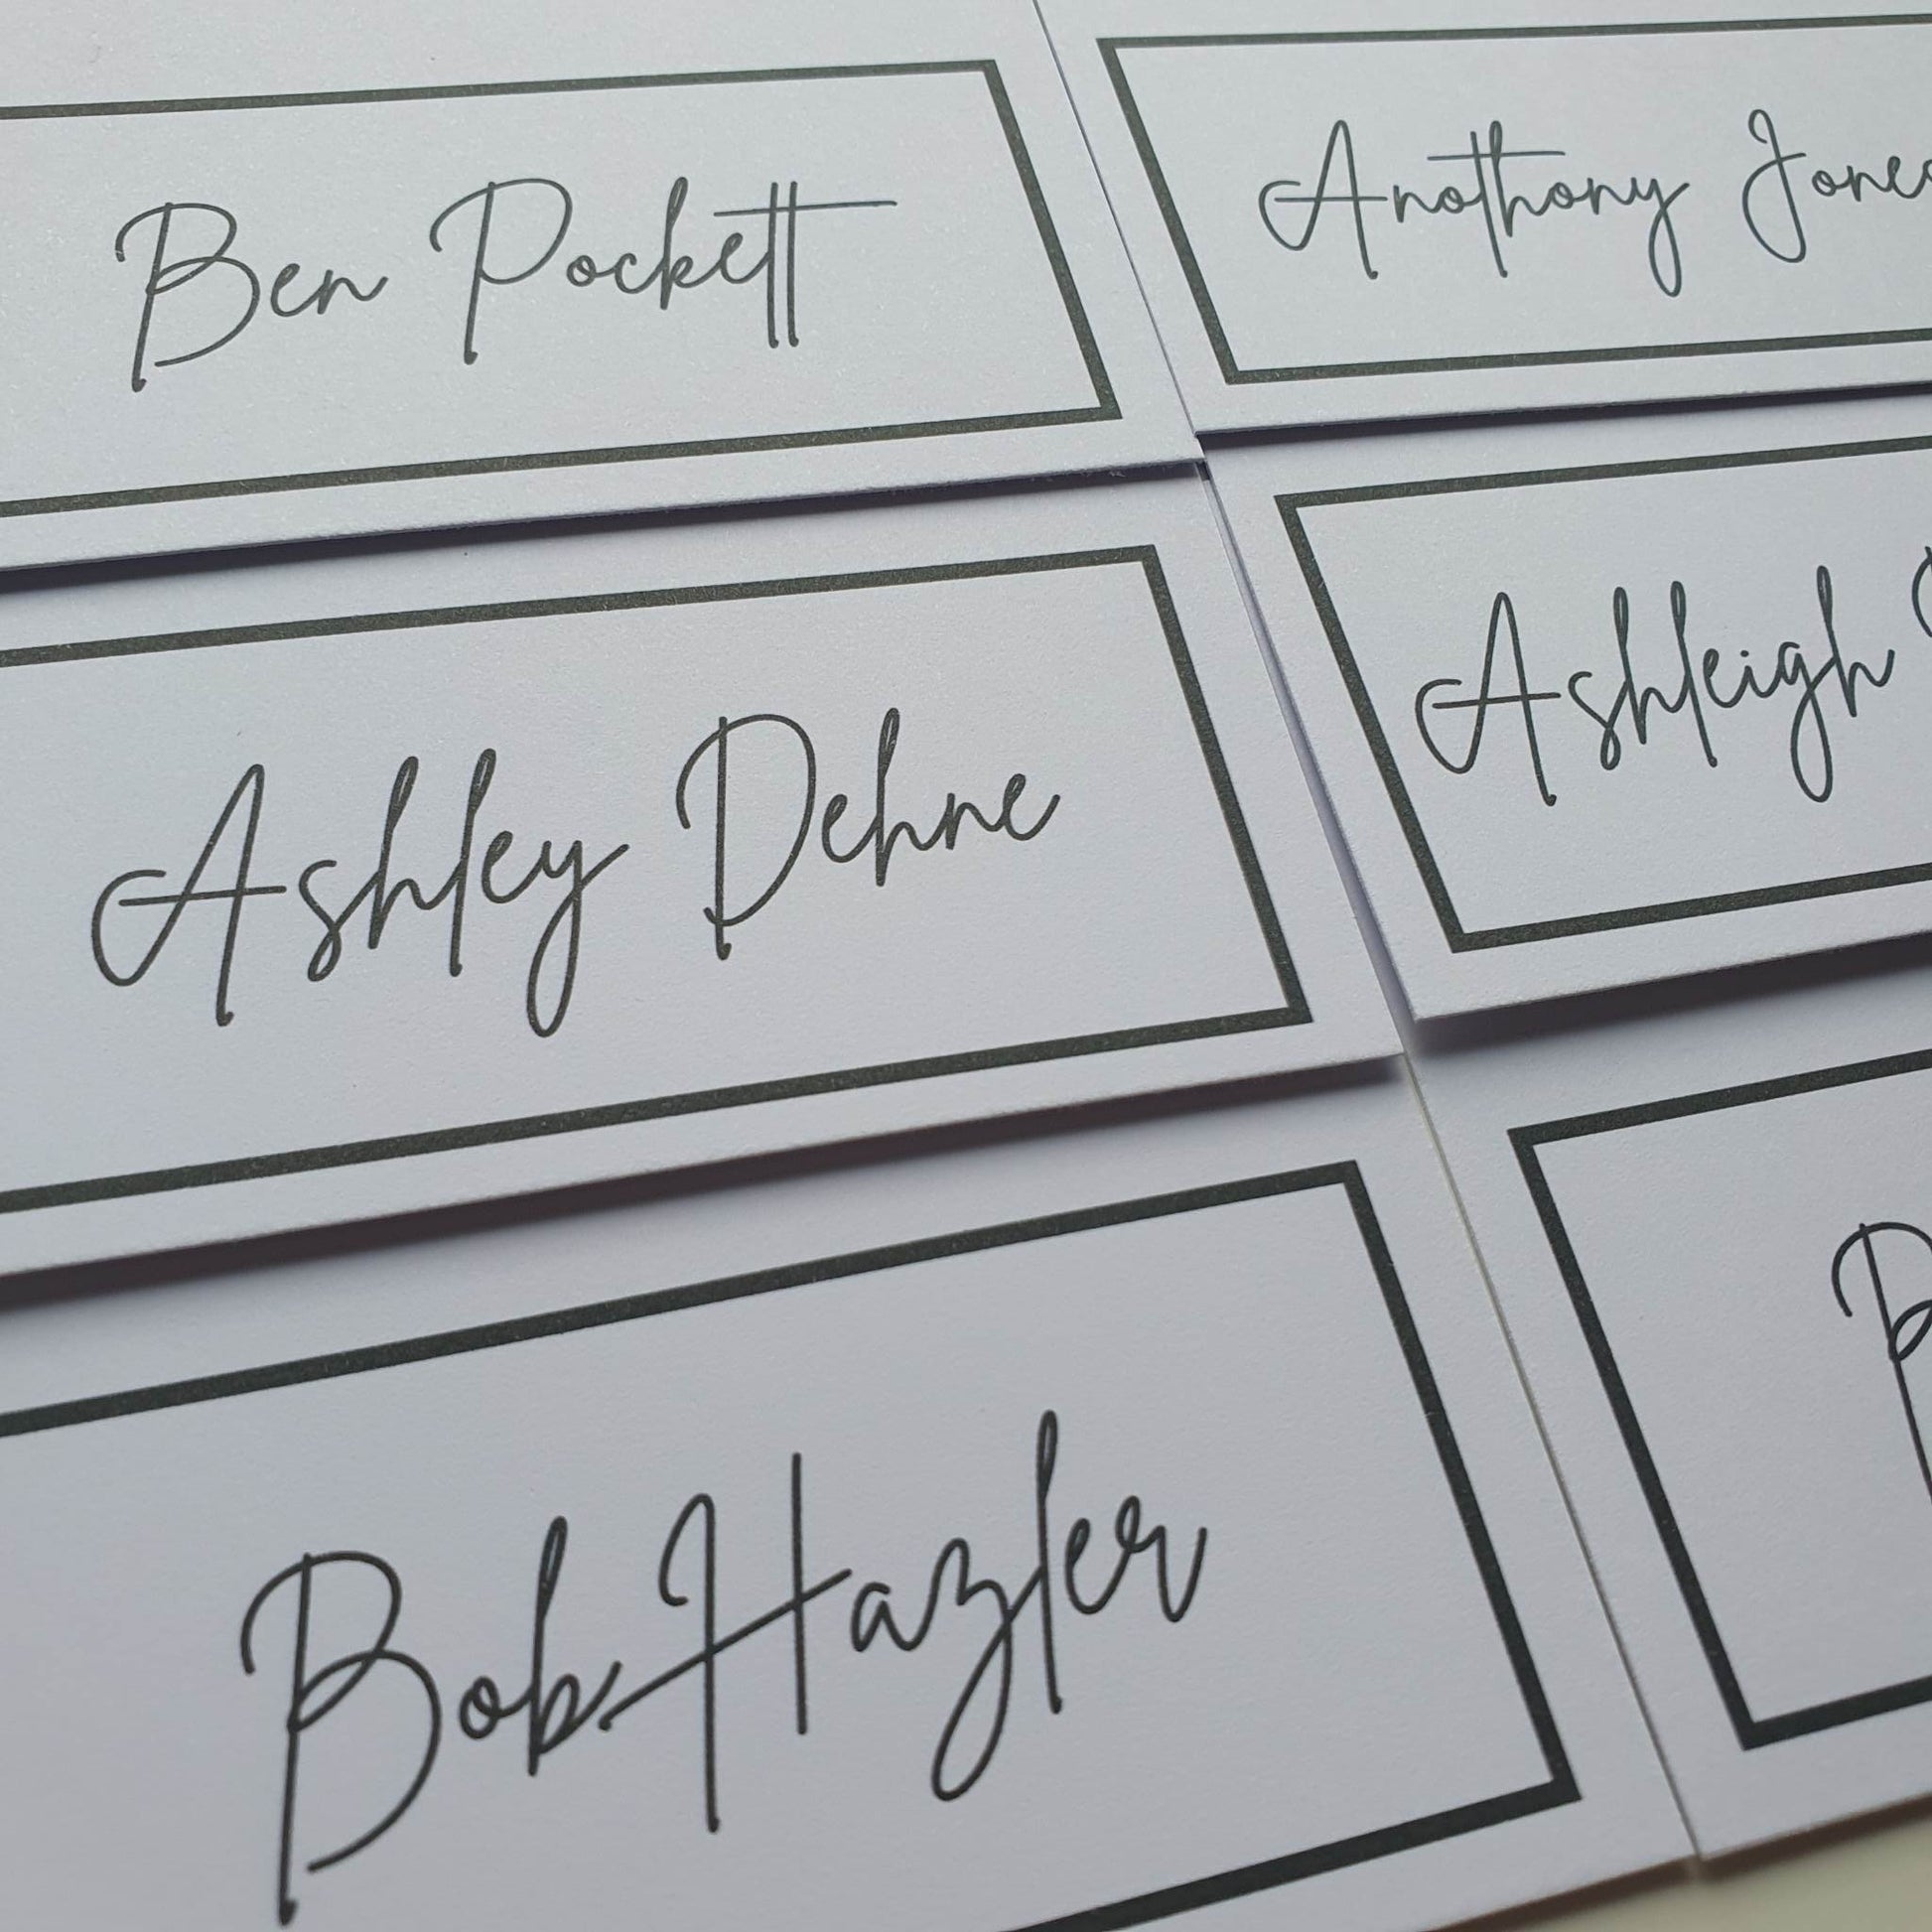 Ben Pockett
Anothony Jones
Ashley Dehne
Ashleigh
Bob Hazler